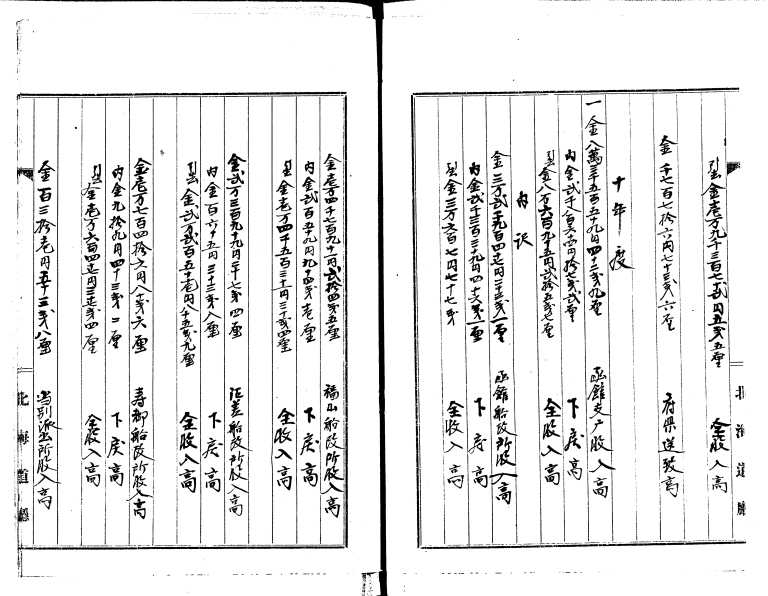 引〆金壱万九千三百七弐円五銭五厘 全收入高
金千七百七拾六円七十三銭六厘 府県送致高
十年度
一金八萬三千五百五十九円四十二銭九厘 函館支庁收入高
内金弐千八百六十四円拾七銭弐厘 下戻高
引〆金八万六百九十五円弐拾五銭七厘 全收入高
内訳
金三万弐千九百四円三十五銭一厘 函館船改所收入高
内金弐千三百三十九円四十六銭一厘 下戻高
引〆金三万六百七円七十七銭 全收入高
北海道廳
金壱万四千七百九十一円弐拾四銭五厘 福山船改所收入高
内金弐百五十九円九十四銭壱厘 下戻高
引〆金壱万四千五百三十一円三十銭四厘 全收入高
金弐万三百九十九円三十七銭四厘 江差船改所收入高
内金百六十五円三十三銭八厘 下戻高
引〆金弐万弐百五十壱円八十五銭九厘 全收入高
金壱万七百四拾六円八十銭六厘 寿都船改所收入高
内金九拾九円四十三銭二厘 下戻高
引〆金壱万六百四七円三七銭四厘 全收入高
金百三拾壱円五十三銭八厘 当別派出所收入高
北海道廳